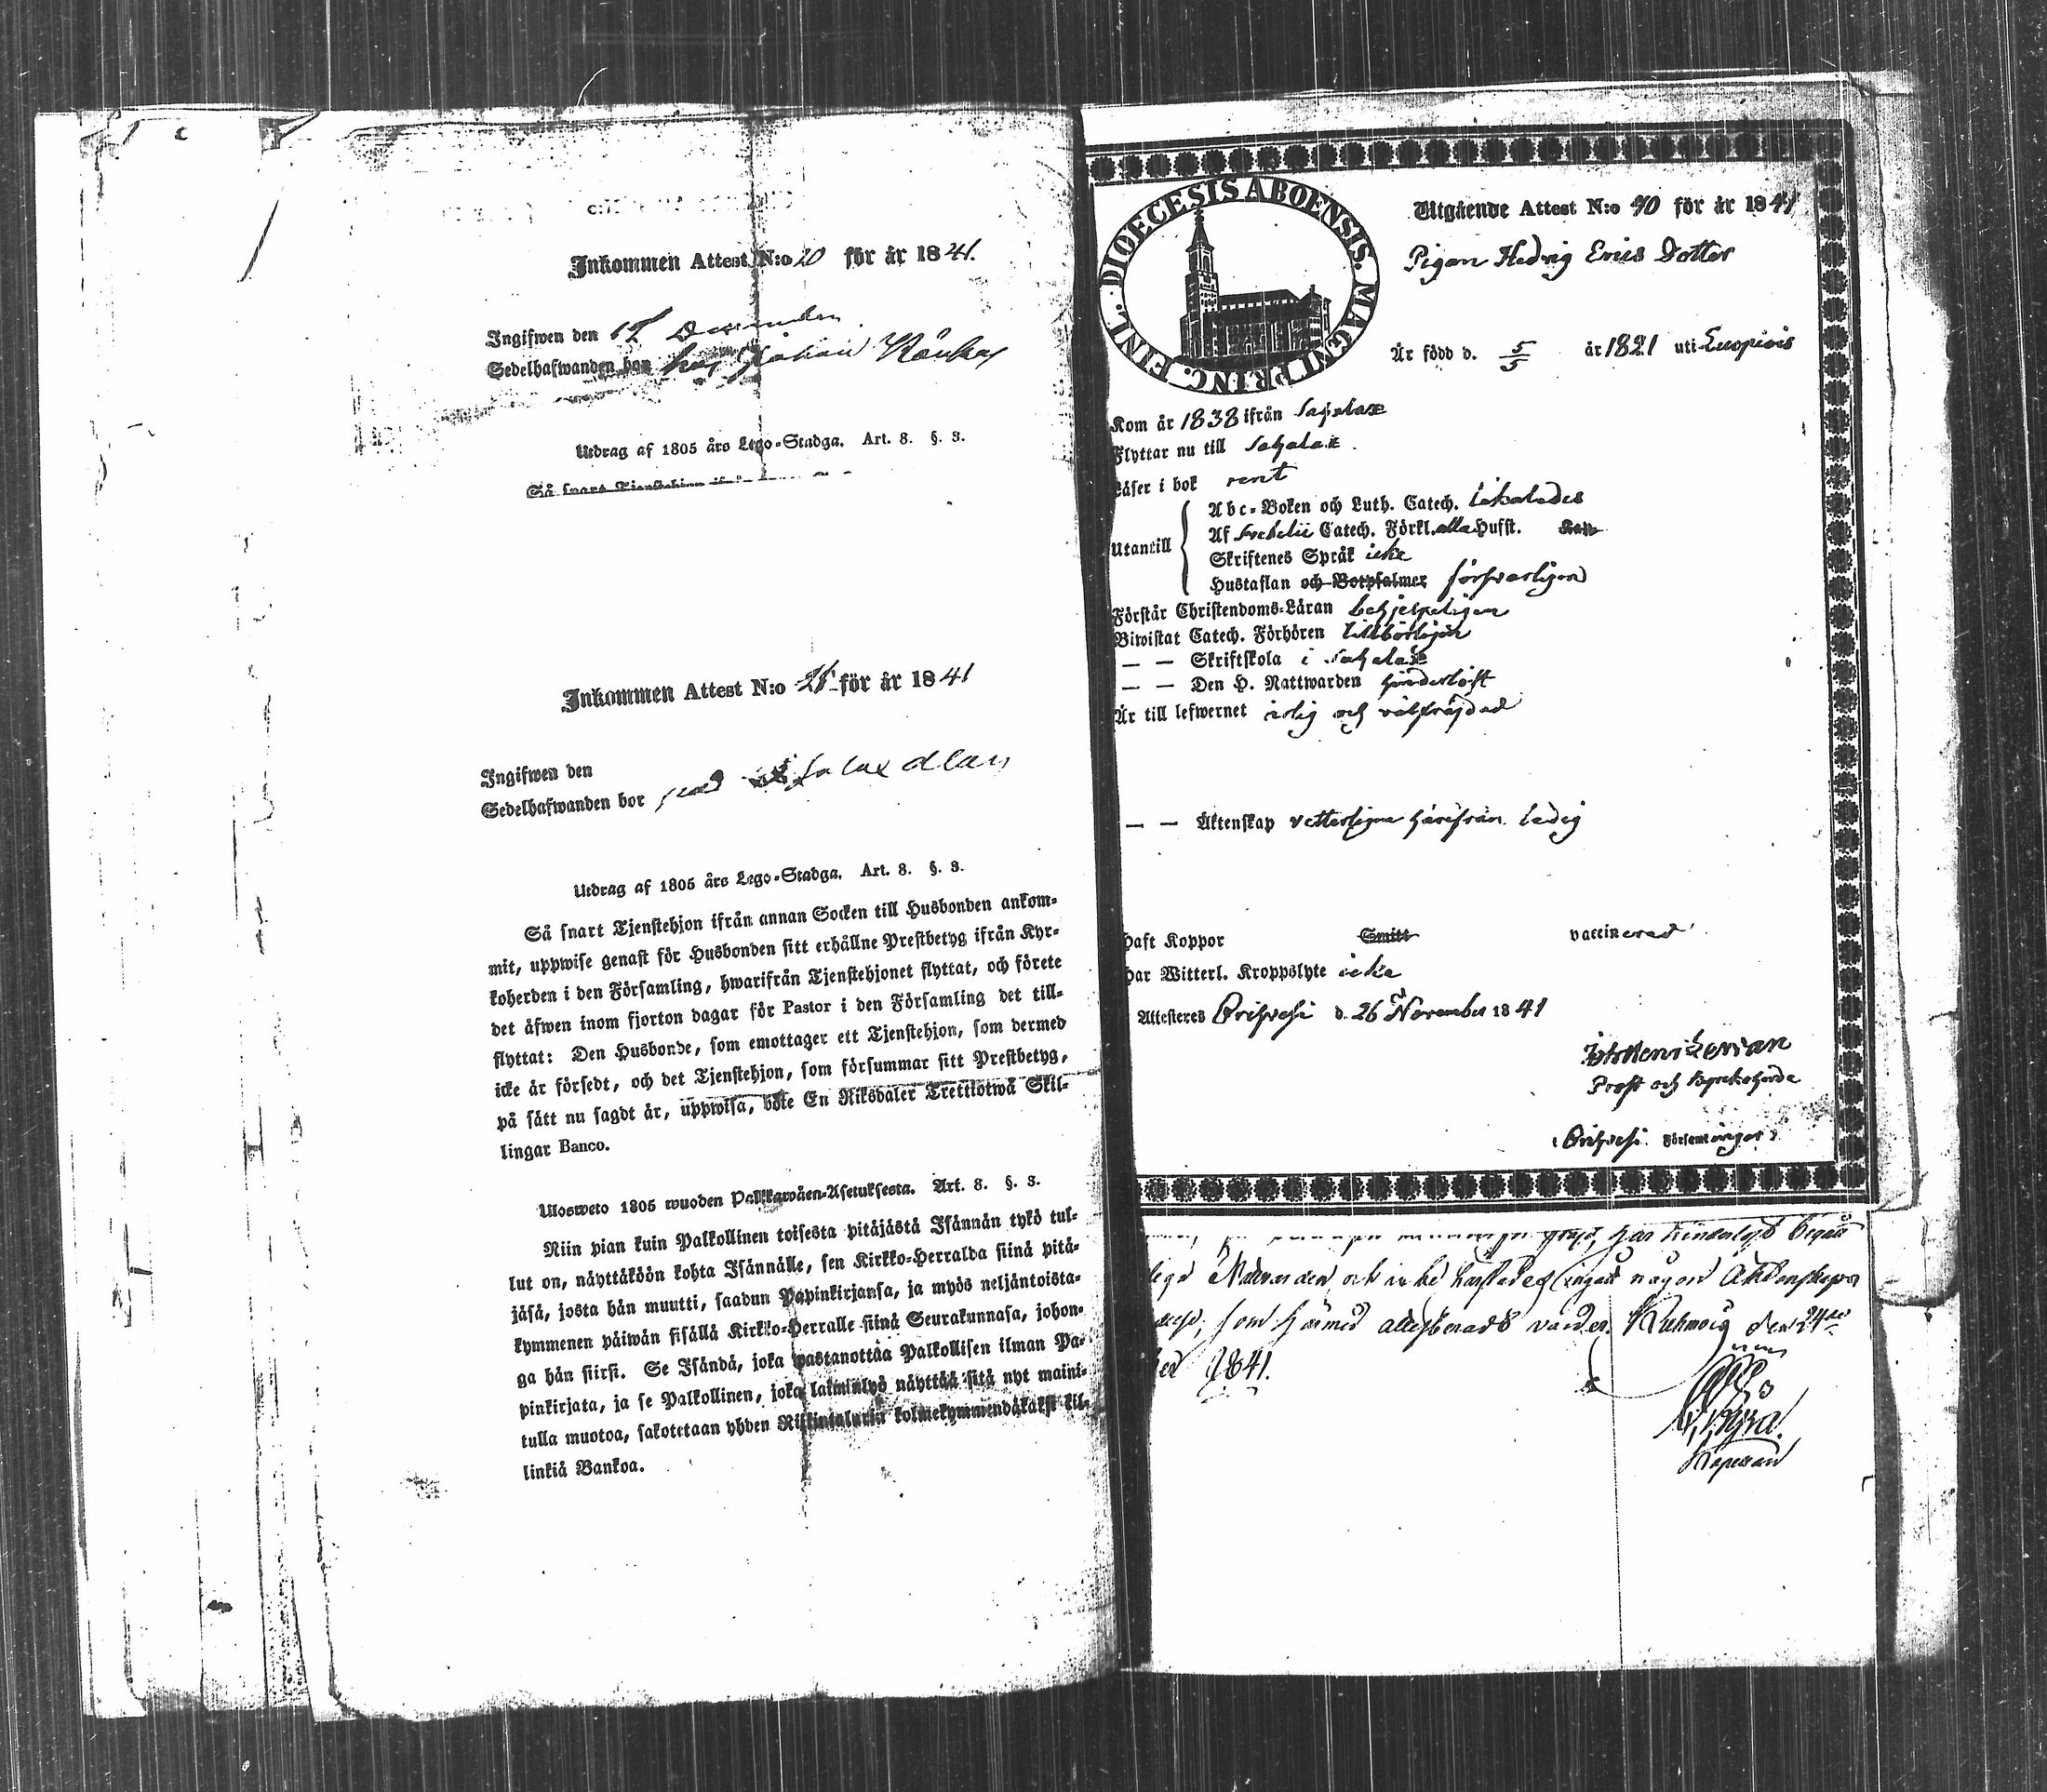 Inkommen Attest N:o 20 för år 1841.
Ingifwen den 12 December
Sedelhafwanden bor hos Johan
Utdrag af 1805 års Lego-Stadga. Art. 8. §. 3.
Så snart Tjenstehjon ifrån
Inkommen Attest N:o 21 för år 1841
Ingifwen den
Sedelhafwanden bor
Utdrag af 1805 års Lego-Stadga. Art. 8. §. 3.
Så snart Tjenstehjon ifrån annan Socken till Husbonden ankom-
mit, uppwise genast för Husbonden sitt erhållne Prestbetyg ifrån Kyr-
koherden i den Församling, hwarifrån Tjenstehjonet flyttat, och förete
det äfwen inom fjorton dagar för Pastor i den Församling det till-
flyttat: Den Husbonde, som emottager ett Tjenstehjon, som dermed
icke är försedt, och det Tjenstehjon, som försummar sitt Prestbetyg,
på sätt nu sagdt är, uppwisa, böte En Riksdaler Trettiotwå Skil-
lingar Banco.
Ulosweto 1805 wuoden Palkkawäen-Asetuksesta. Art. 8. §. 3.
Niin pian kuin Palkollinen toisesta pitäjästä Isännän tykö tul-
lut on, näyttäköön kohta Isännälle, sen Kirkko-Herralda siinä pitä-
jäsä, josta hän muutti, saadun Papinkirjansa, ja myös neljäntoista-
kymmenen päiwän sisällä Kirkko-Herralle siinä Seurakunnasa, johon-
ga hän siirsi. Se Isändä, joka wastanottaa Palkollisen ilman Pa-
pinkirjata, ja se Palkollinen, joka laiminlyö näyttää sitä nyt maini-
tulla muotoa, sakotetaan yhden Riikintalarin kolmekymmendäkaksi kil-
linkiä Bankoa.
DIOECESIS ABOENSIS. MAGNI PRINC. FINL.
Utgående Attest N:o 40 för år 1841
Pigan Hedvig Erics Dotter
Är född d. 5/5 år 1821 uti Luopiois
Kom år 1838 ifrån Sahalax
Flyttar nu till Sahalax.
Läser i bok rent
Utantill
Abc-Boken och Luth. Catech.
Af Svebelii Catech. Förkl. alla Hufst.
Skriftenes Språk icke
Hustaflan och Botpsalmer försvarligen
Förstår Christendoms-Läran behjelpeligen
Biwistat Catech. Förhören tillbörligen
— — Skriftskola i Sahalax
— — Den H. Nattwarden hinderlöst
Är till lefwernet ärlig och välfrejdad
— — Äktenskap vetterligen härifrån ledig
Haft Koppor Smitt vaccinerad
Har Witterl. Kroppslyte icke
Attesteres Orihvesi d. 26 November 1841
Prost och Kyrkoherde
i Orihvesi Församlingar.
har hinderlöst begått
Nattvarden och icke härstädes ingått något Äktenskaps
som härmed attesterads varder. Kuhmois den 24de
1841.
Kapellan